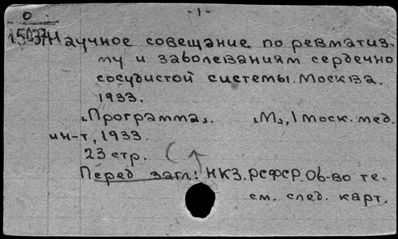 0
- 1 -
15037 Научное совещание по ревматиз-
му и заболеваниям сердечно
сосудистой системы. Москва.
1933.
„Программа„. „М„, 1 моск. мед.
ин-т, 1933.
23 стр.
Перед загл.: НКЗ. РСФСР. Об-во те-
см. след. карт.